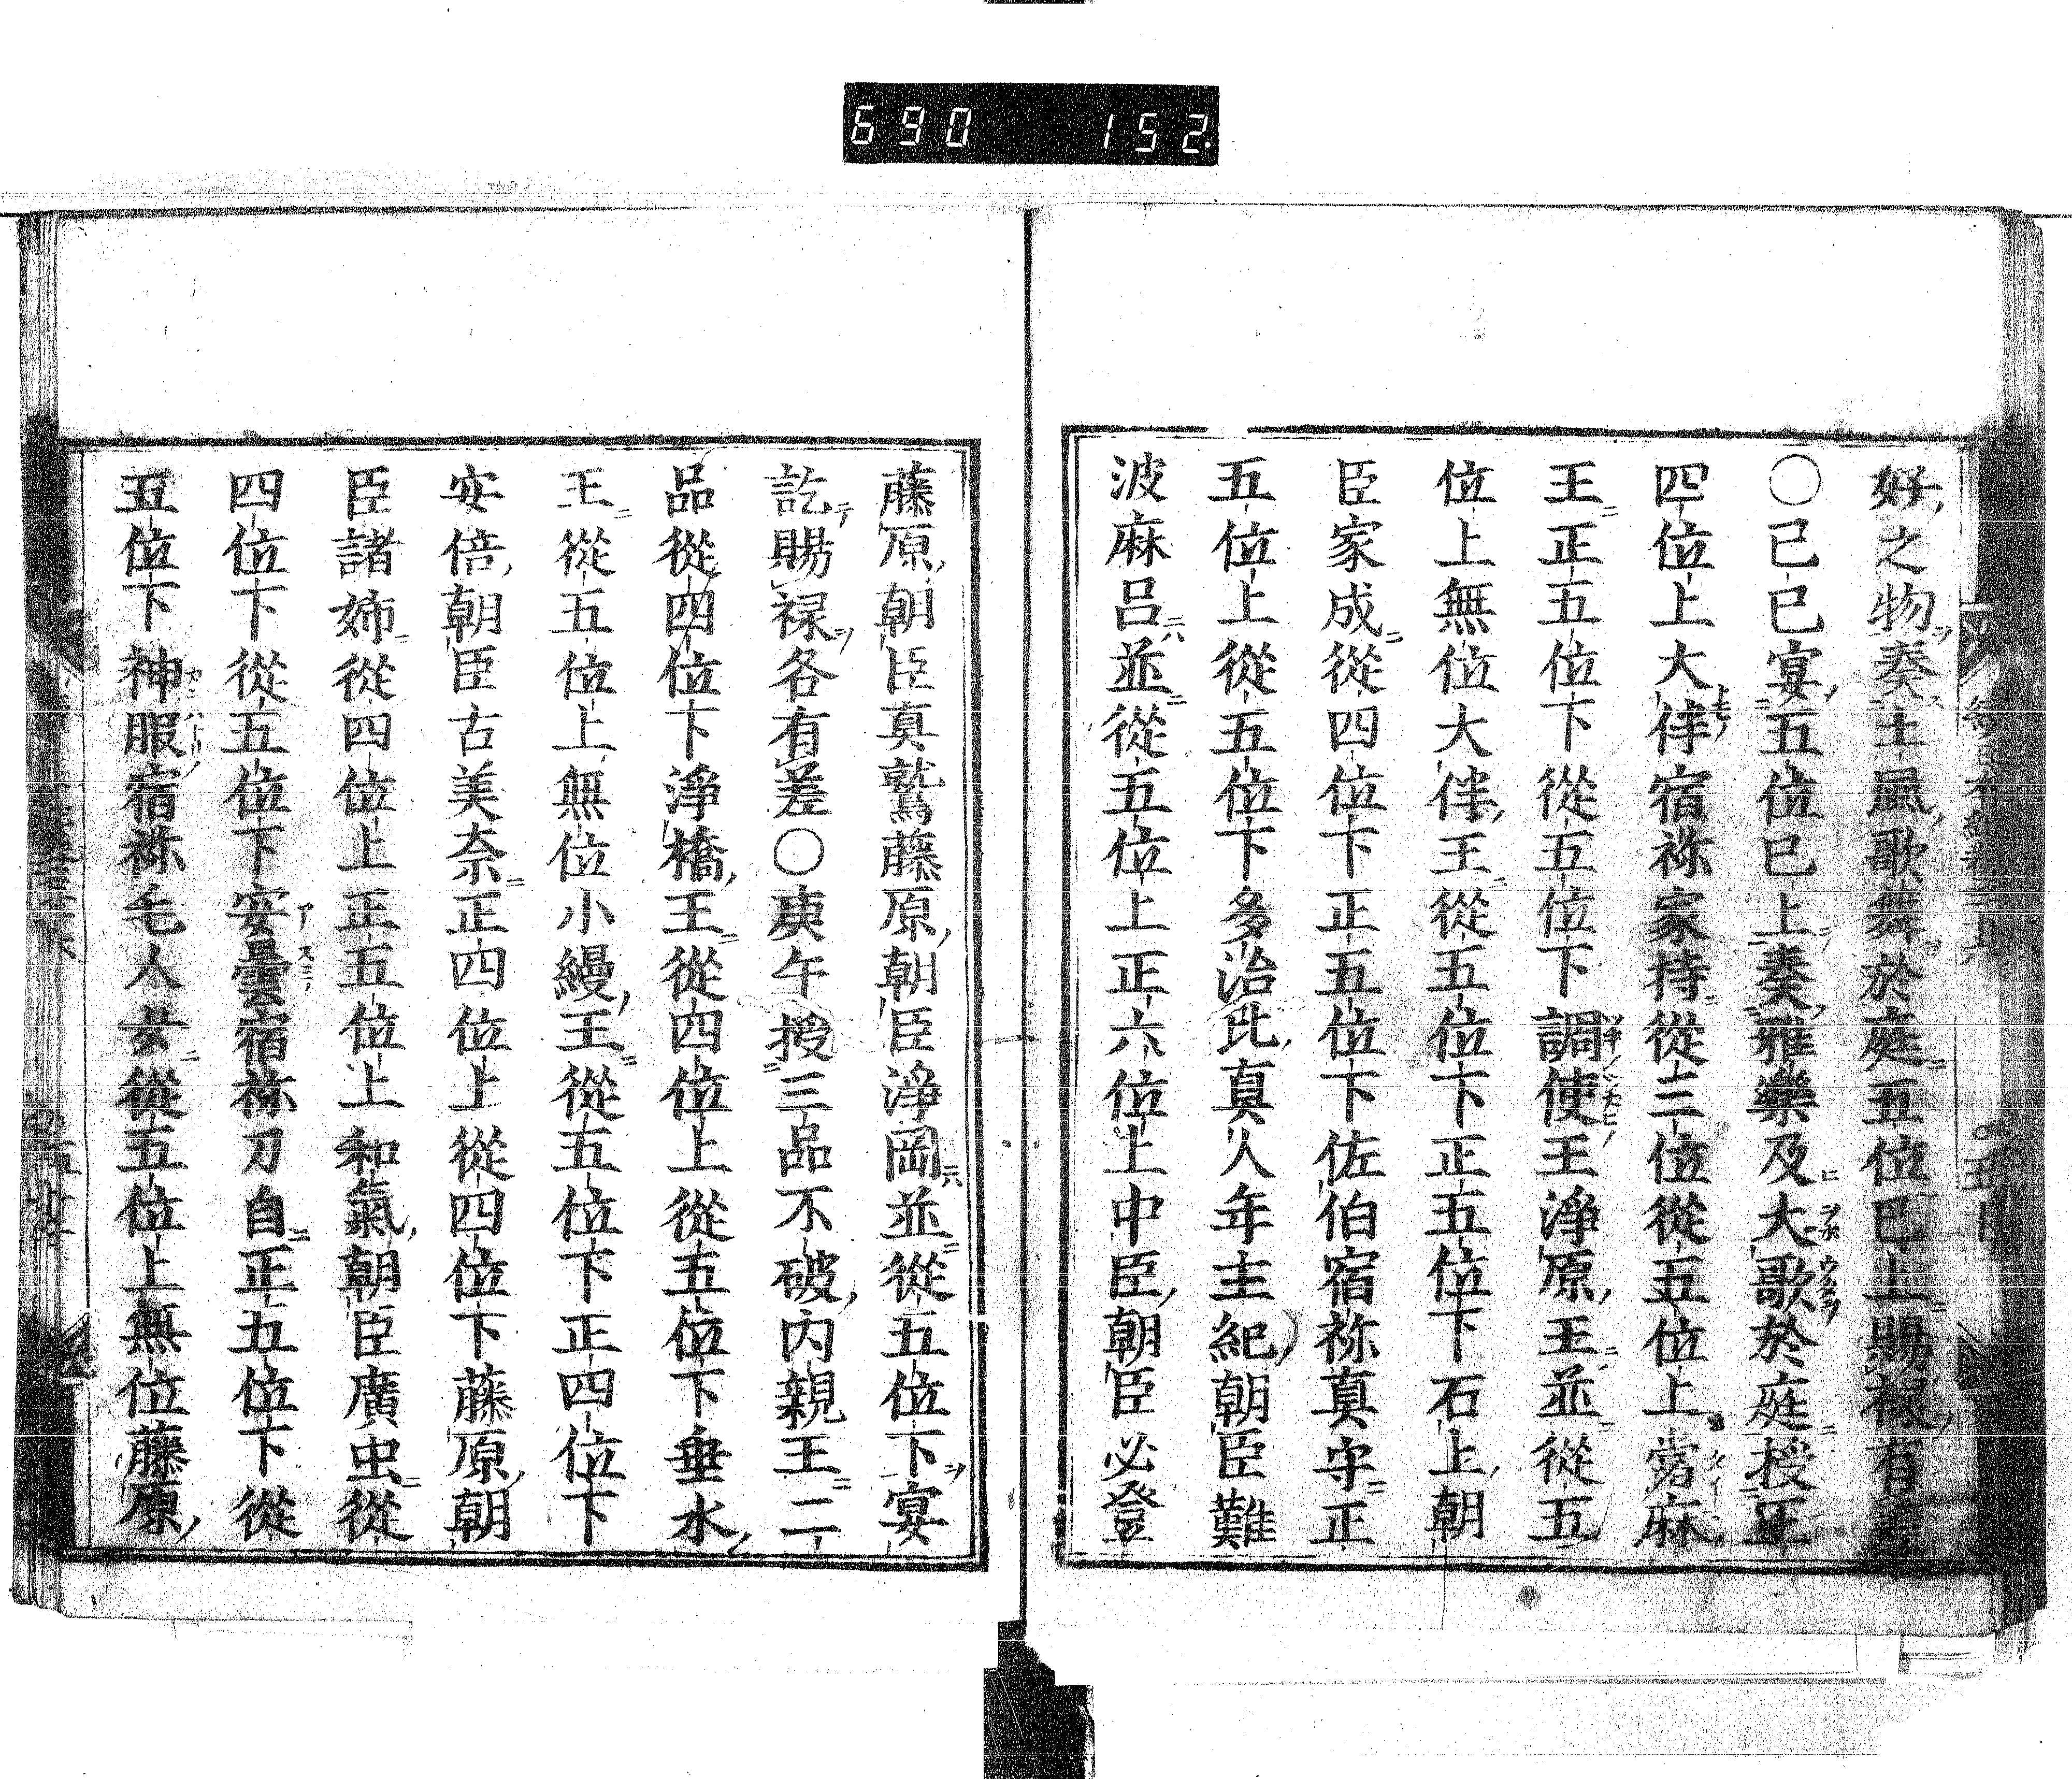 690 152.
好之物奏土風歌舞於庭五位已上賜禄有差
〇己巳宴五位已上奏雅樂及大歌於庭授正
四位上大伴宿祢家持從三位從五位上當麻
王正五位下從五位下調使王淨原王並從五
位上無位大伴王從五位下正五位下石上朝
臣家成從四位下正五位下佐伯宿祢真守正
五位上從五位下多治比真人年主紀朝臣難
波麻呂並從五位上正六位上中臣朝臣必登
藤原朝臣真鷲藤原朝臣淨岡並從五位下宴
訖賜禄各有差〇庚午授三品不破内親王二
品從四位下淨橋王從四位上從五位下垂水
王從五位上無位小縵王從五位下正四位下
安倍朝臣古美奈正四位上從四位下藤原朝
臣諸姉從四位上正五位上和氣朝臣廣虫從
四位下從五位下安曇宿祢刀自正五位下從
五位下神服宿祢毛人女從五位上無位藤原